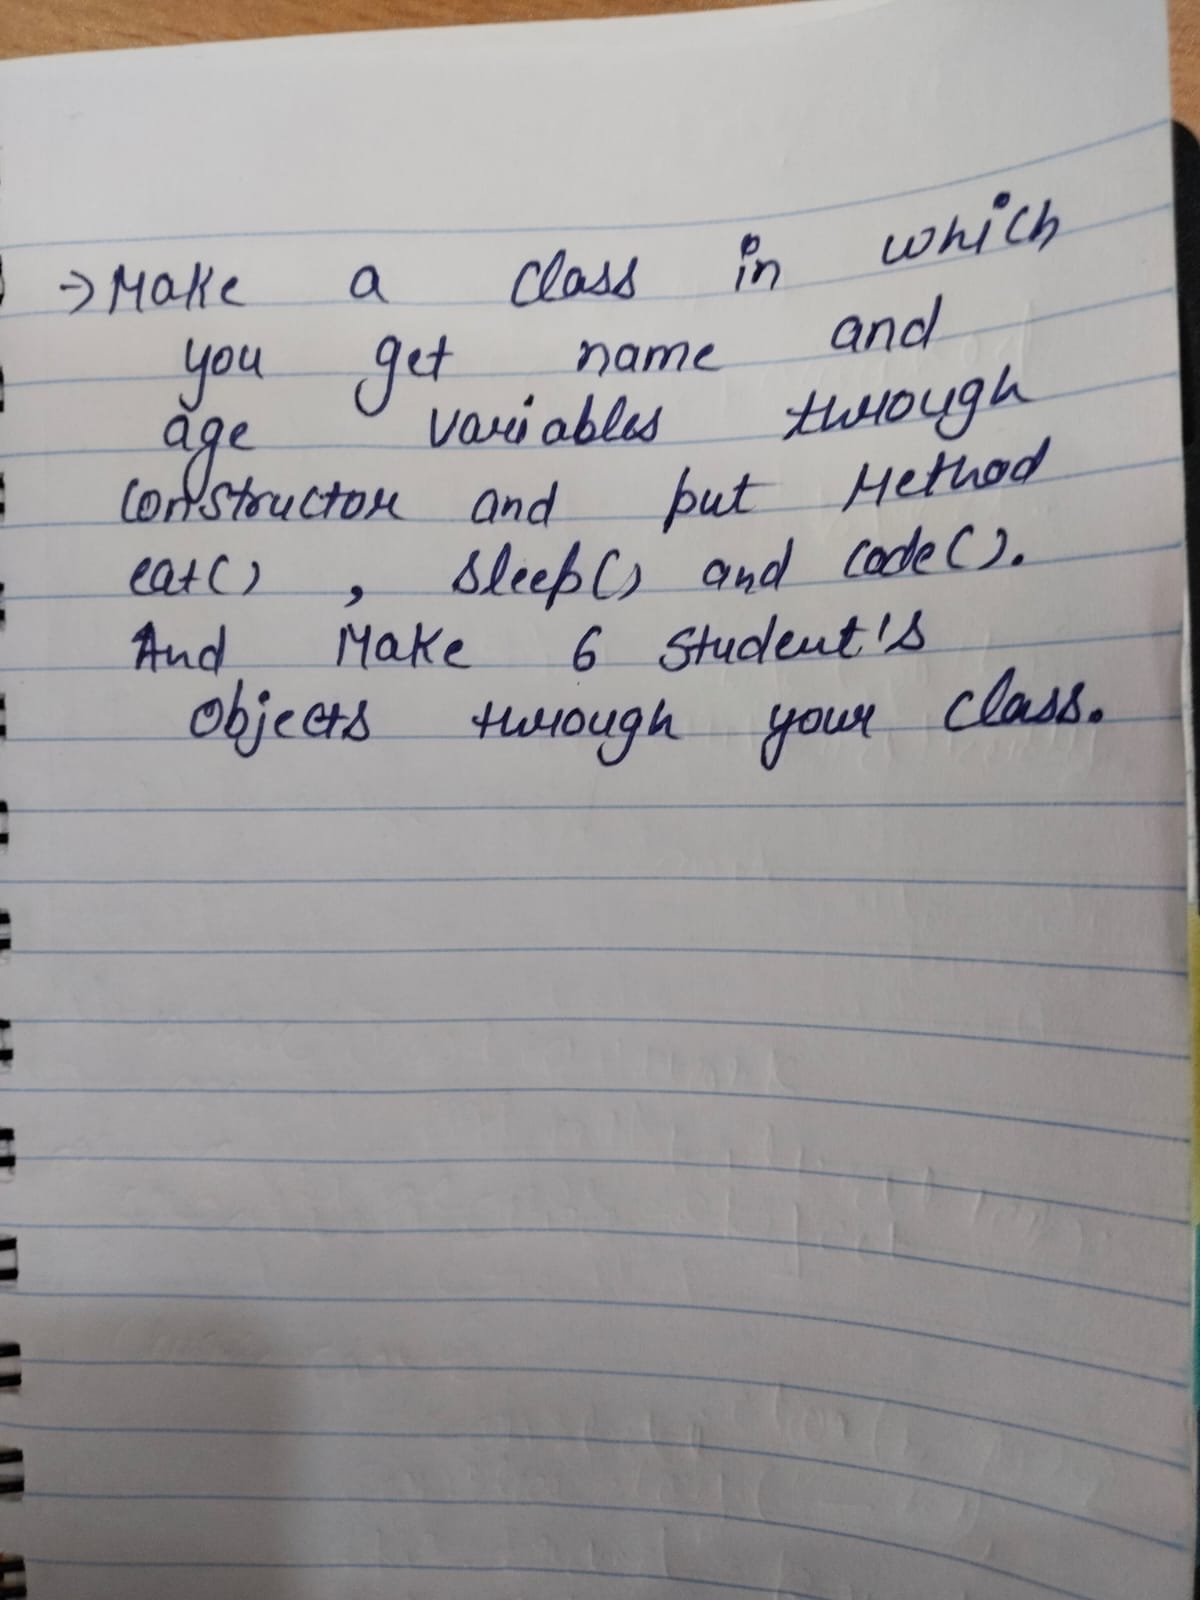 → Make a class in which
you get name and
age variables through
constructor and put Method
eat() , sleep() and code().
And Make 6 Student's
objects through your class.